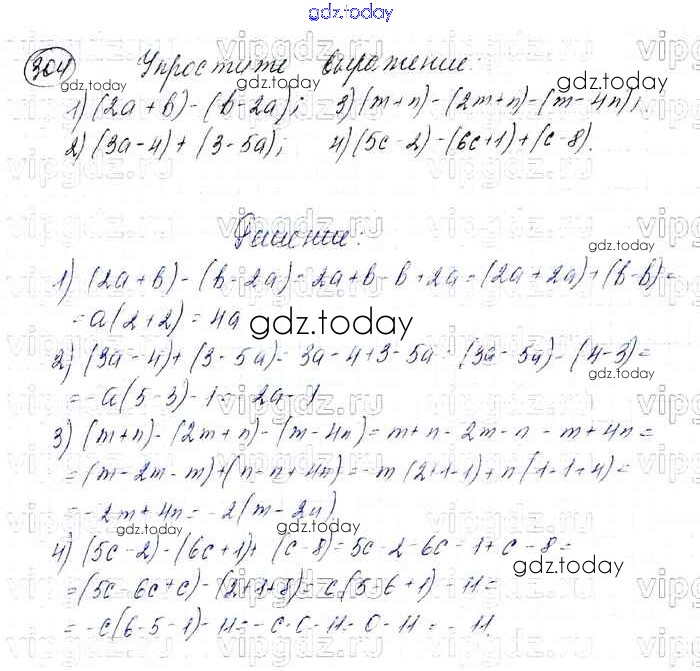 gdz.today
304 Упростите выражение:
1) (2a + b) - (b - 2a); 3) (m + n) - (2m + n) - (m - 4n);
2) (3a - 4) + (3 - 5a); 4) (5c - 2) - (6c + 1) + (c - 8).
Решение:
1) (2a + b) - (b - 2a) = 2a + b - b + 2a = (2a + 2a) + (b - b) =
= a(2 + 2) = 4a
2) (3a - 4) + (3 - 5a) = 3a - 4 + 3 - 5a = (3a - 5a) - (4 - 3) =
= -a(5 - 3) - 1 = -2a - 1
3) (m + n) - (2m + n) - (m - 4n) = m + n - 2m - n - m + 4n =
= (m - 2m - m) + (n - n + 4n) = -m(2 + 1 - 1) + n(1 - 1 + 4) =
= -2m + 4n = -2(m - 2n).
4) (5c - 2) - (6c + 1) + (c - 8) = 5c - 2 - 6c - 1 + c - 8 =
= (5c - 6c + c) - (2 + 1 + 8) = c(5 - 6 + 1) - 11 =
= -c(6 - 5 - 1) - 11 = -c·0 - 11 = 0 - 11 = -11.